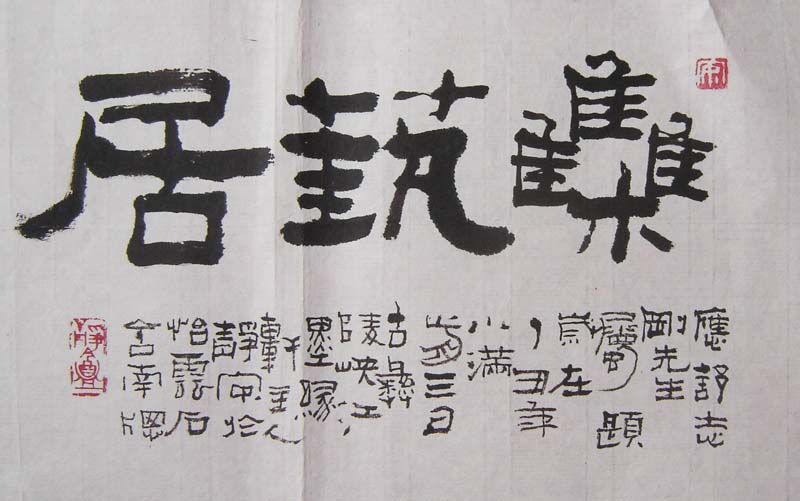 雧埶居
應舒志
剛先生
屬題
歲在
丁丑年
小滿
三日
古彝
陵峽江
墨緣
軒主人
靜安於
怡雲石
舍南窗